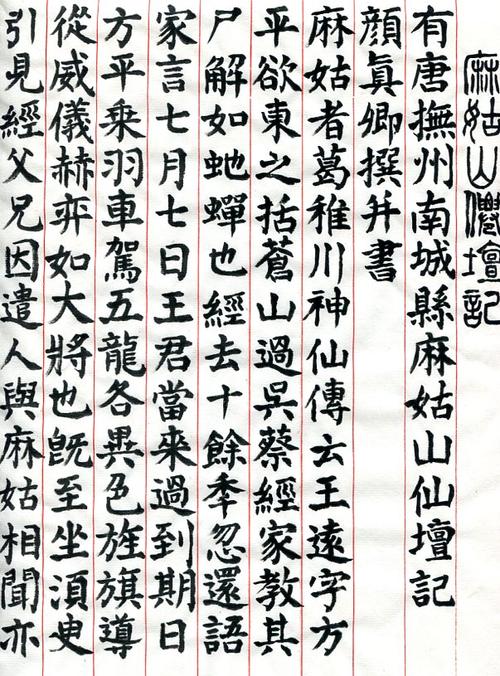 麻姑山僊壇記
有唐撫州南城縣麻姑山仙壇記
顏眞卿撰并書
麻姑者葛稚川神仙傳云王遠字方
平欲東之括蒼山過吳蔡經家教其
尸解如虵蟬也經去十餘秊忽還語
家言七月七日王君當來過到期日
方平乘羽車駕五龍各異色旌旗導
從威儀赫弈如大將也既至坐須臾
引見經父兄因遣人與麻姑相聞亦